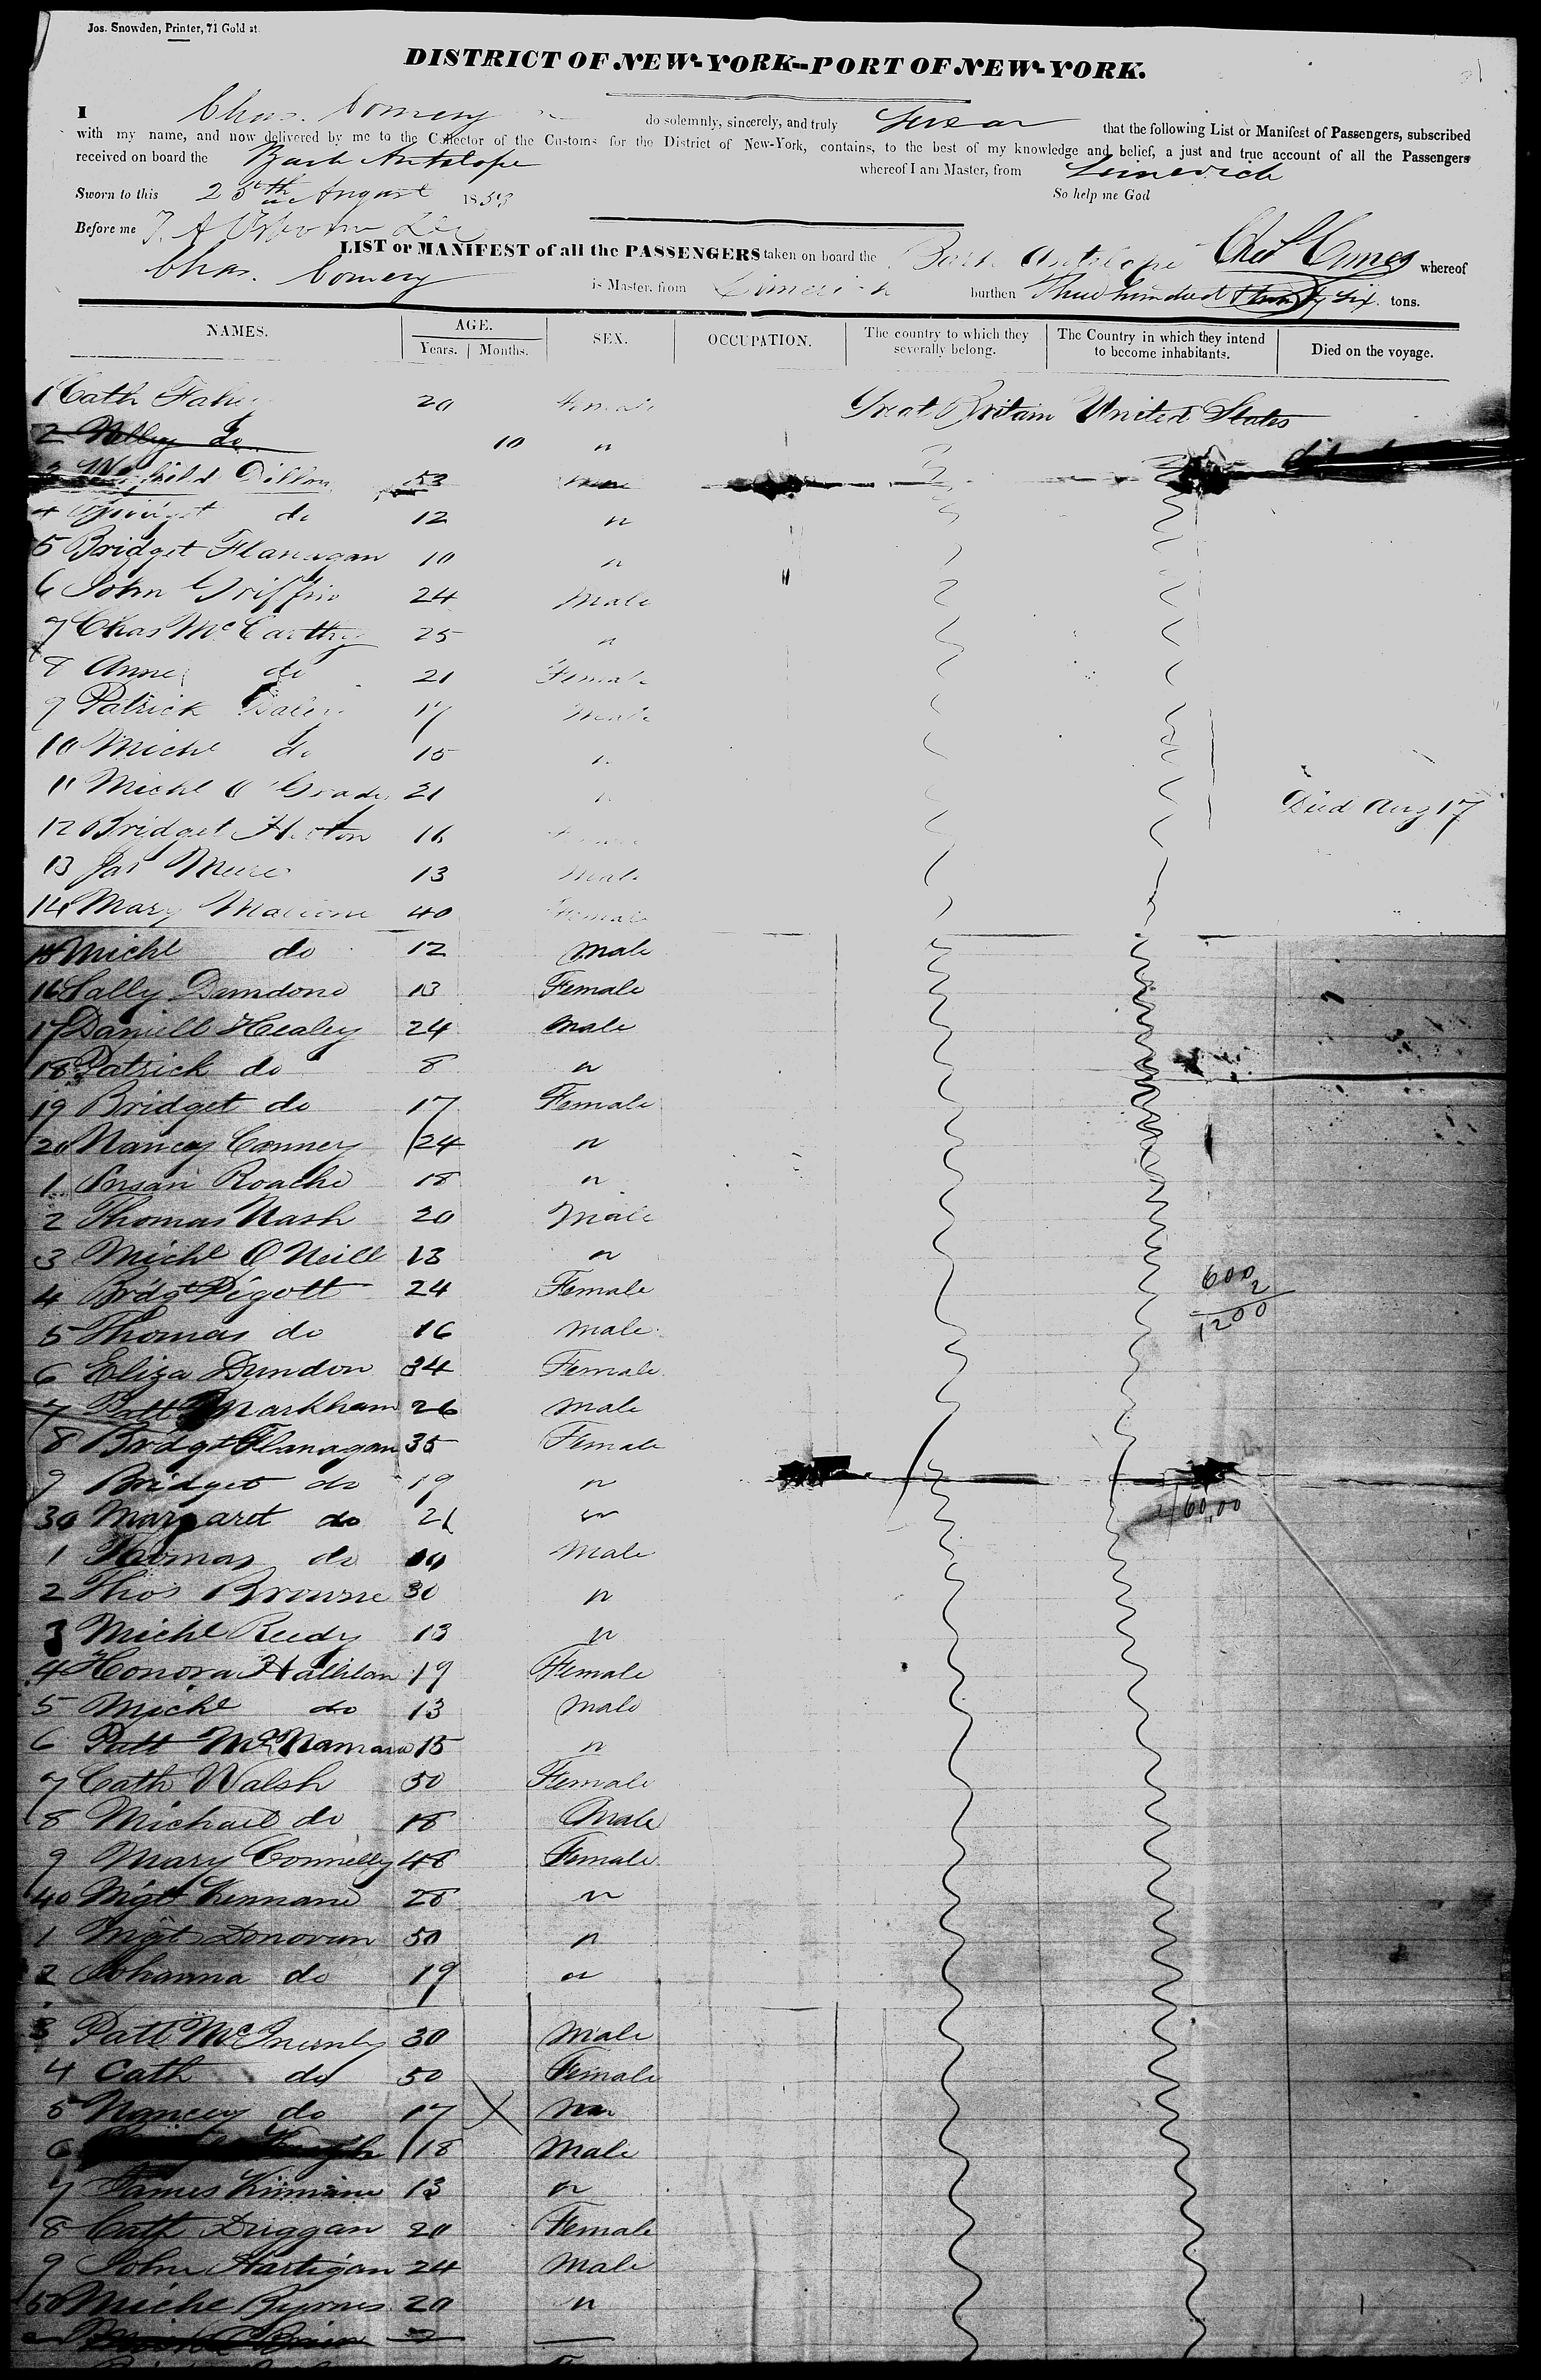 Jos. Snowden, Printer, 71 Gold st.
DISTRICT OF NEW-YORK--PORT OF NEW-YORK.
I Chas. Comery do solemnly, sincerely, and truly Swear that the following List or Manifest of Passengers, subscribed
with my name, and now delivered by me to the Collector of the Customs for the District of New-York, contains, to the best of my knowledge and belief, a just and true account of all the Passengers
received on board the Bark Antelope whereof I am Master, from Limerick
Sworn to this 25th August 1853 So help me God
Before me
LIST or MANIFEST of all the PASSENGERS taken on board the Bark Antelope whereof
Chas. Comery is Master, from Limerick burthen Three hundred Six tons.
NAMES. AGE. SEX. OCCUPATION. The country to which they severally belong. The Country in which they intend to become inhabitants. Died on the voyage.
Years. Months.
1 Cath Fahey 20 Female Great Britain United States
2 do 10 "
3 Dillon 53
4 do 12 "
5 Bridget Flanagan 10 "
6 John Griffin 24 Male
7 Chas McCarthy 25 "
8 Anne do 21 Female
9 Patrick 17 Male
10 Michl do 15 "
11 Michl O'Grady 21 " Died Aug 17
12 Bridget 16 Female
13 Jas 13 Male
14 Mary 40 Female
15 Michl do 12 Male
16 Sally Dundone 13 Female
17 Daniell Healey 24 Male
18 Patrick do 8 "
19 Bridget do 17 Female
20 Nancy Conners 24 "
1 Susan Roache 18 "
2 Thomas Nash 20 Male
3 Michl O Neill 13 "
4 Brdgt Pigott 24 Female
5 Thomas do 16 Male
600
2
1200
6 Eliza Dundon 34 Female
7 Patt Markham 26 Male
8 Brdgt Flanagan 35 Female
9 Bridget do 19 "
30 Margaret do 21 "
1 Thomas do 10 Male
2 Thos Browne 30 "
3 Michl Reedy 13 "
4 Honora Hallilan 19 Female
5 Michl do 13 Male
6 Patt McNamara 15 "
7 Cath Walsh 50 Female
8 Michael do 18 Male
9 Mary Connelly 48 Female
40 Mgt Kennane 28 "
1 Mgt Donovan 50 "
2 Johanna do 19 "
3 Patt McInernly 30 Male
4 Cath do 50 Female
5 Nancy do 17 X
6 18 Male
7 James Kinnane 13 "
8 Cath Duggan 20 Female
9 John Hartigan 24 Male
50 Michl Byrnes 20 "